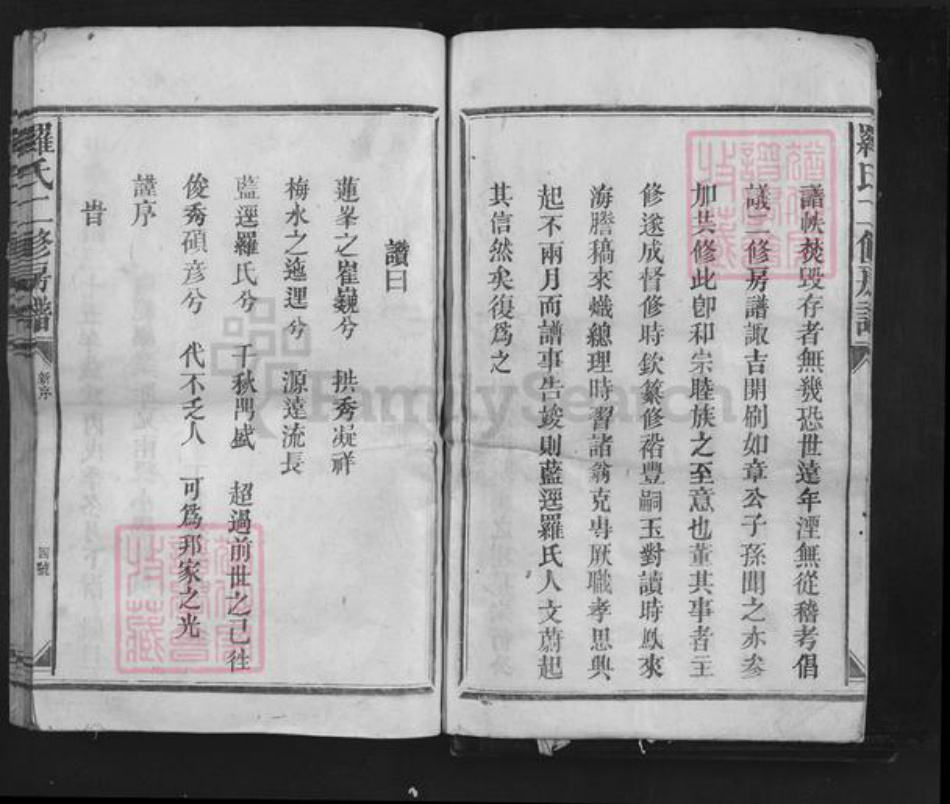 羅氏二修房譜
譜帙焚毀存者無幾恐世遠年湮無從稽考倡
議二修房譜諏吉開刷如章公子孫聞之亦參
加共修此卽和宗睦族之至意也董其事者主
修遂成督修時欽纂修裕豐嗣玉對讀時鳳來
海謄稿來熾總理時習諸翁克專厥職孝思興
起不兩月而譜事告竣則藍逕羅氏人文蔚起
其信然矣復爲之
讚曰
蓮峯之崔巍兮 拱秀凝祥
梅水之迤浬兮 源遠流長
藍逕羅氏兮 千秋鬥盛 超過前世之已往
俊秀碩彥兮 代不乏人 可爲邦家之光
謹序
旹
羅氏二修房譜
新序
四號
FamilySearch